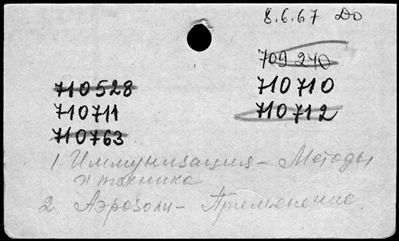 8.6.67 До
709 240
710528
710710
710711
710712
710763
1 Иммунизация – Методы
и техника
2. Аэрозоли – Применение.